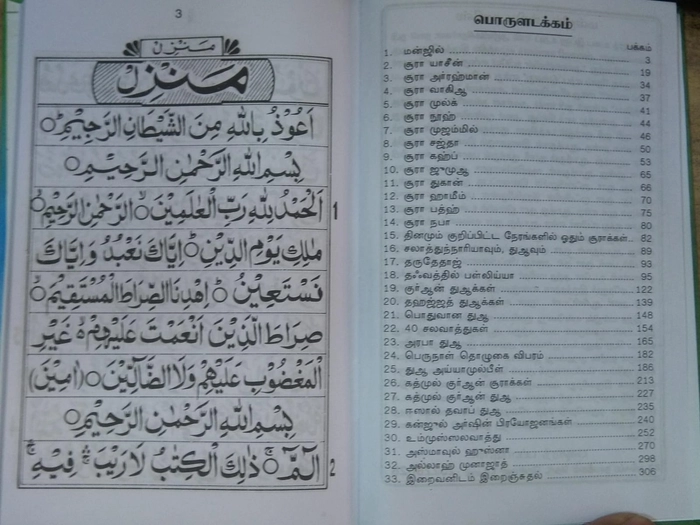 3
مَنْزِلْ
مَنْزِلْ
اَعُوْذُ بِاللّٰهِ مِنَ الشَّيْطَانِ الرَّجِيْمِ
بِسْمِ اللّٰهِ الرَّحْمٰنِ الرَّحِيْمِ
اَلْحَمْدُ لِلّٰهِ رَبِّ الْعٰلَمِيْنَ ۙ الرَّحْمٰنِ الرَّحِيْمِ ۙ 1
مٰلِكِ يَوْمِ الدِّيْنِ ؕ اِيَّاكَ نَعْبُدُ وَاِيَّاكَ
نَسْتَعِيْنُ ؕ اِهْدِنَا الصِّرَاطَ الْمُسْتَقِيْمَ ۙ
صِرَاطَ الَّذِيْنَ اَنْعَمْتَ عَلَيْهِمْ ۙ غَيْرِ
الْمَغْضُوْبِ عَلَيْهِمْ وَلَا الضَّآلِّيْنَ (اٰمِيْنَ)
بِسْمِ اللّٰهِ الرَّحْمٰنِ الرَّحِيْمِ
الٓمّٓ ۚ ذٰلِكَ الْكِتٰبُ لَا رَيْبَ ۛ فِيْهِ ۛ 2
பொருளடக்கம்
பக்கம்
1. மன்ஜில் 3
2. சூரா யாசீன் 19
3. சூரா அர்ரஹ்மான் 34
4. சூரா வாகிஆ 37
5. சூரா முல்க் 41
6. சூரா நூஹ் 44
7. சூரா முஜம்மில் 46
8. சூரா சஜ்தா 50
9. சூரா கஹ்ப் 53
10. சூரா ஜுமுஆ 65
11. சூரா துகான் 66
12. சூரா ஹாமீம் 70
13. சூரா பத்ஹ் 75
14. சூரா நபா 80
15. தினமும் குறிப்பிட்ட நேரங்களில் ஓதும் சூராக்கள் 82
16. சலாத்துந்நாரியாவும், துஆவும் 89
17. தருதேதாஜ் 93
18. தஃவத்தில் பல்லிய்யா 95
19. குர்ஆன் துஆக்கள் 122
20. தஹஜ்ஜத் துஆக்கள் 139
21. பொதுவான துஆ 148
22. 40 சலவாத்துகள் 154
23. அரபா துஆ 165
24. பெருநாள் தொழுகை விபரம் 182
25. துஆ அய்யாமுல்பீள் 186
26. கத்முல் குர்ஆன் சூராக்கள் 213
27. கத்முல் குர்ஆன் துஆ 227
28. ஈஸால் தவாப் துஆ 235
29. கன்ஜுல் அர்ஷின் பிரயோஜனங்கள் 240
30. உம்முஸ்ஸலவாத்து 252
31. அஸ்மாவுல் ஹுஸ்னா 270
32. அல்லாஹ் முனாஜாத் 298
33. இறைவனிடம் இறைஞ்சுதல் 306